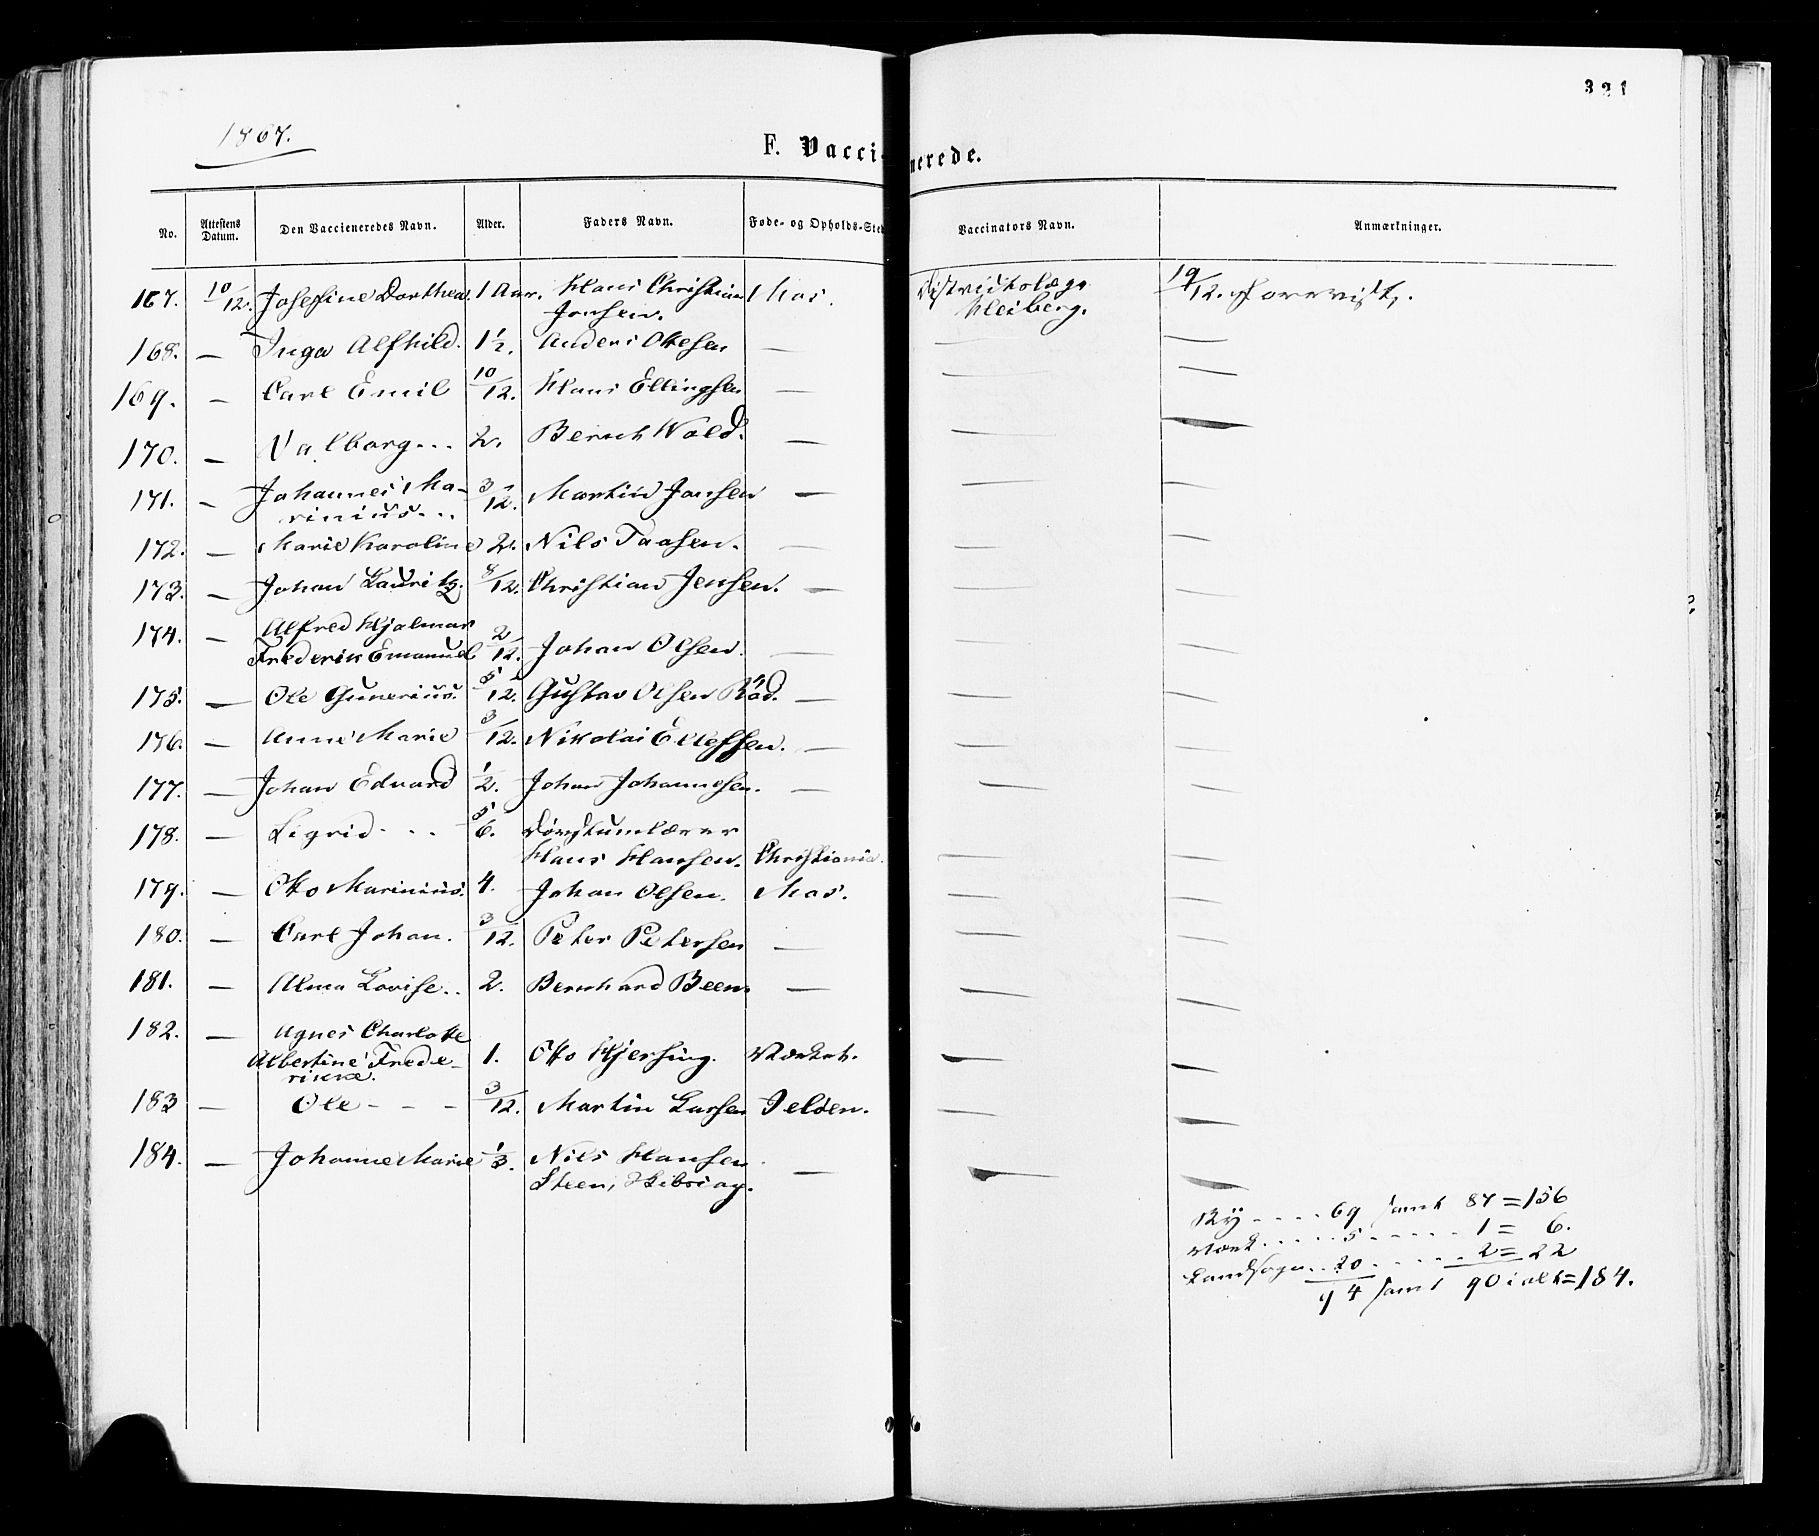 321
1867.
F. Vaccienerede.
No. Attestens Datum. Den Vaccieneredes Navn. Alder. Faders Navn. Føde- og Opholds-Sted Vaccinators Navn. Anmærkninger.
167. 10/12. Josefine Dorthea. 1 Aar. Hans Christian Mos. Distriktslæge 19/12. Forevist.
Jonsen. Heiberg.
168. — Inga Alfhild. 1½. Anders Ottesen — — —
169. — Carl Emil 10/12. Hans Ellingsen — — —
170. — Valborg... 2. Bernh Wold. — — —
171. — Johannes Ma- 3/12. Martin Jonsen — — —
rinius...
172. — Marie Karoline 2. Nils Taasen. — — —
173. — Johan Lauritz. 8/12. Christian Jensen. — — —
174. — Alfred Hjalmar
Frederik Emanuel 2/12. Johan Olsen. — — —
175. — Ole Gunerius. 5/12. Gustav Olsen Röd. — — —
176. — Anne Marie 3/12. Nikolai Ellefsen. — — —
177. — Johan Edvard 1/2. Johan Johannesen. — — —
178. — Sigrid... 5/6.
Hans Hansen. Christiania. — —
179. — Otto Marinius. 4. Johan Olsen. Mos. — —
180. — Carl Johan. 3/12. Peter Petersen — — —
181. — Alma Lovise.. 2. Bernhard Been. — — —
182. — Agnes Charlotte
Albertine Frede- 1. Otto Hjersing. Værket. — —
rikke.
183 — Ole - - - 3/12. Martin Larsen Jelöen. — —
184. — Johanne Marie 1/3. Nils Hansen — — —
Steen,
By .... 69 samt 87 = 156
Værk ..... 5 ..... 1 = 6.
Landsogn.. 20 ..... 2 = 22
94 samt 90 i alt = 184.
6